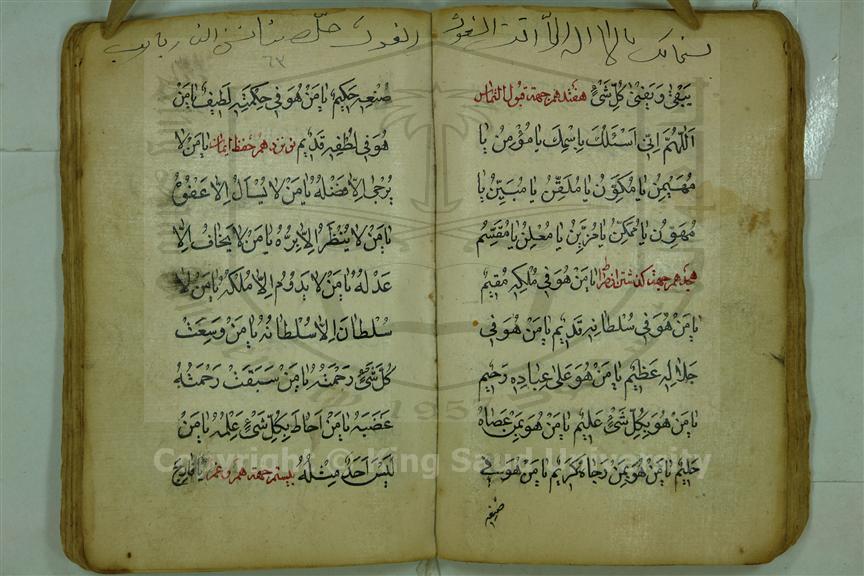 سبحانك يا لا اله الا انت الغوث الغوث خلصنا من النار يا رب
يَبْقٰى وَيَفْنٰى كُلُّ شَىْءٍ هفندهم جهة قبول التماس
اَللّٰهُمَّ اِنِّى اَسْئَلُكَ بِاسْمِكَ يَا مُؤْمِنُ يَا
مُهَيْمِنُ يَا مُكَوِّنُ يَا مُلَقِّنُ يَا مُبَيِّنُ يَا
مُهَوِّنُ يَا مُمَكِّنُ يَا مُزَيِّنُ يَا مُعْلِنُ يَا مُقَسِّمُ
هجدهم جهت يَا مَنْ هُوَ فِى مُلْكِهِ مُقِيمٌ
يَا مَنْ هُوَ فِى سُلْطَانِهِ قَدِيمٌ يَا مَنْ هُوَ فِى
جَلَالِهِ عَظِيمٌ يَا مَنْ هُوَ عَلٰى عِبَادِهِ رَحِيمٌ
يَا مَنْ هُوَ بِكُلِّ شَىْءٍ عَلِيمٌ يَا مَنْ هُوَ بِمَنْ عَصَاهُ
حَلِيمٌ يَا مَنْ هُوَ بِمَنْ رَجَاهُ كَرِيمٌ يَا مَنْ هُوَ فِى
صنعه
٦٣
صُنْعِهِ حَكِيمٌ يَا مَنْ هُوَ فِى حِكْمَتِهِ لَطِيفٌ يَا مَنْ
هُوَ فِى لُطْفِهِ قَدِيمٌ نوزدهم حفظ ايمان يَا مَنْ لَا
يُرْجٰى اِلَّا فَضْلُهُ يَا مَنْ لَا يُسْأَلُ اِلَّا عَفْوُهُ
يَا مَنْ لَا يُنْظَرُ اِلَّا بِرُّهُ يَا مَنْ لَا يُخَافُ اِلَّا
عَدْلُهُ يَا مَنْ لَا يَدُومُ اِلَّا مُلْكُهُ يَا مَنْ لَا
سُلْطَانَ اِلَّا سُلْطَانُهُ يَا مَنْ وَسِعَتْ
كُلَّ شَىْءٍ رَحْمَتُهُ يَا مَنْ سَبَقَتْ رَحْمَتُهُ
غَضَبَهُ يَا مَنْ اَحَاطَ بِكُلِّ شَىْءٍ عِلْمُهُ يَا مَنْ
لَيْسَ اَحَدٌ مِثْلَهُ بيستم جهة هم وغم يَا فَارِجَ
Copyright © King Saud University
1957